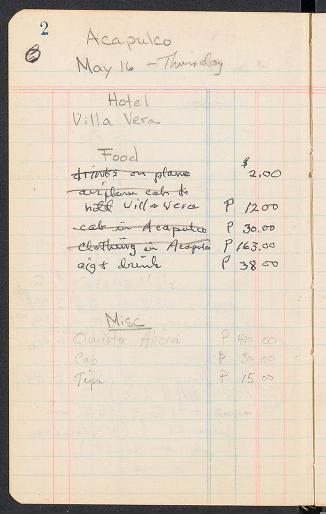 2
Acapulco
May 16 - Thursday
Hotel
Villa Vera
Food
drinks on plane $ 2.00
airplane cab to
hotel Villa Vera P 12 00
cab in Acapulco P 30.00
clothing in Acapulco P 163.00
cig & drink P 38 50
Misc
Quinta Alicia P 400 00
Cab P 30.00
Tips P 15 00